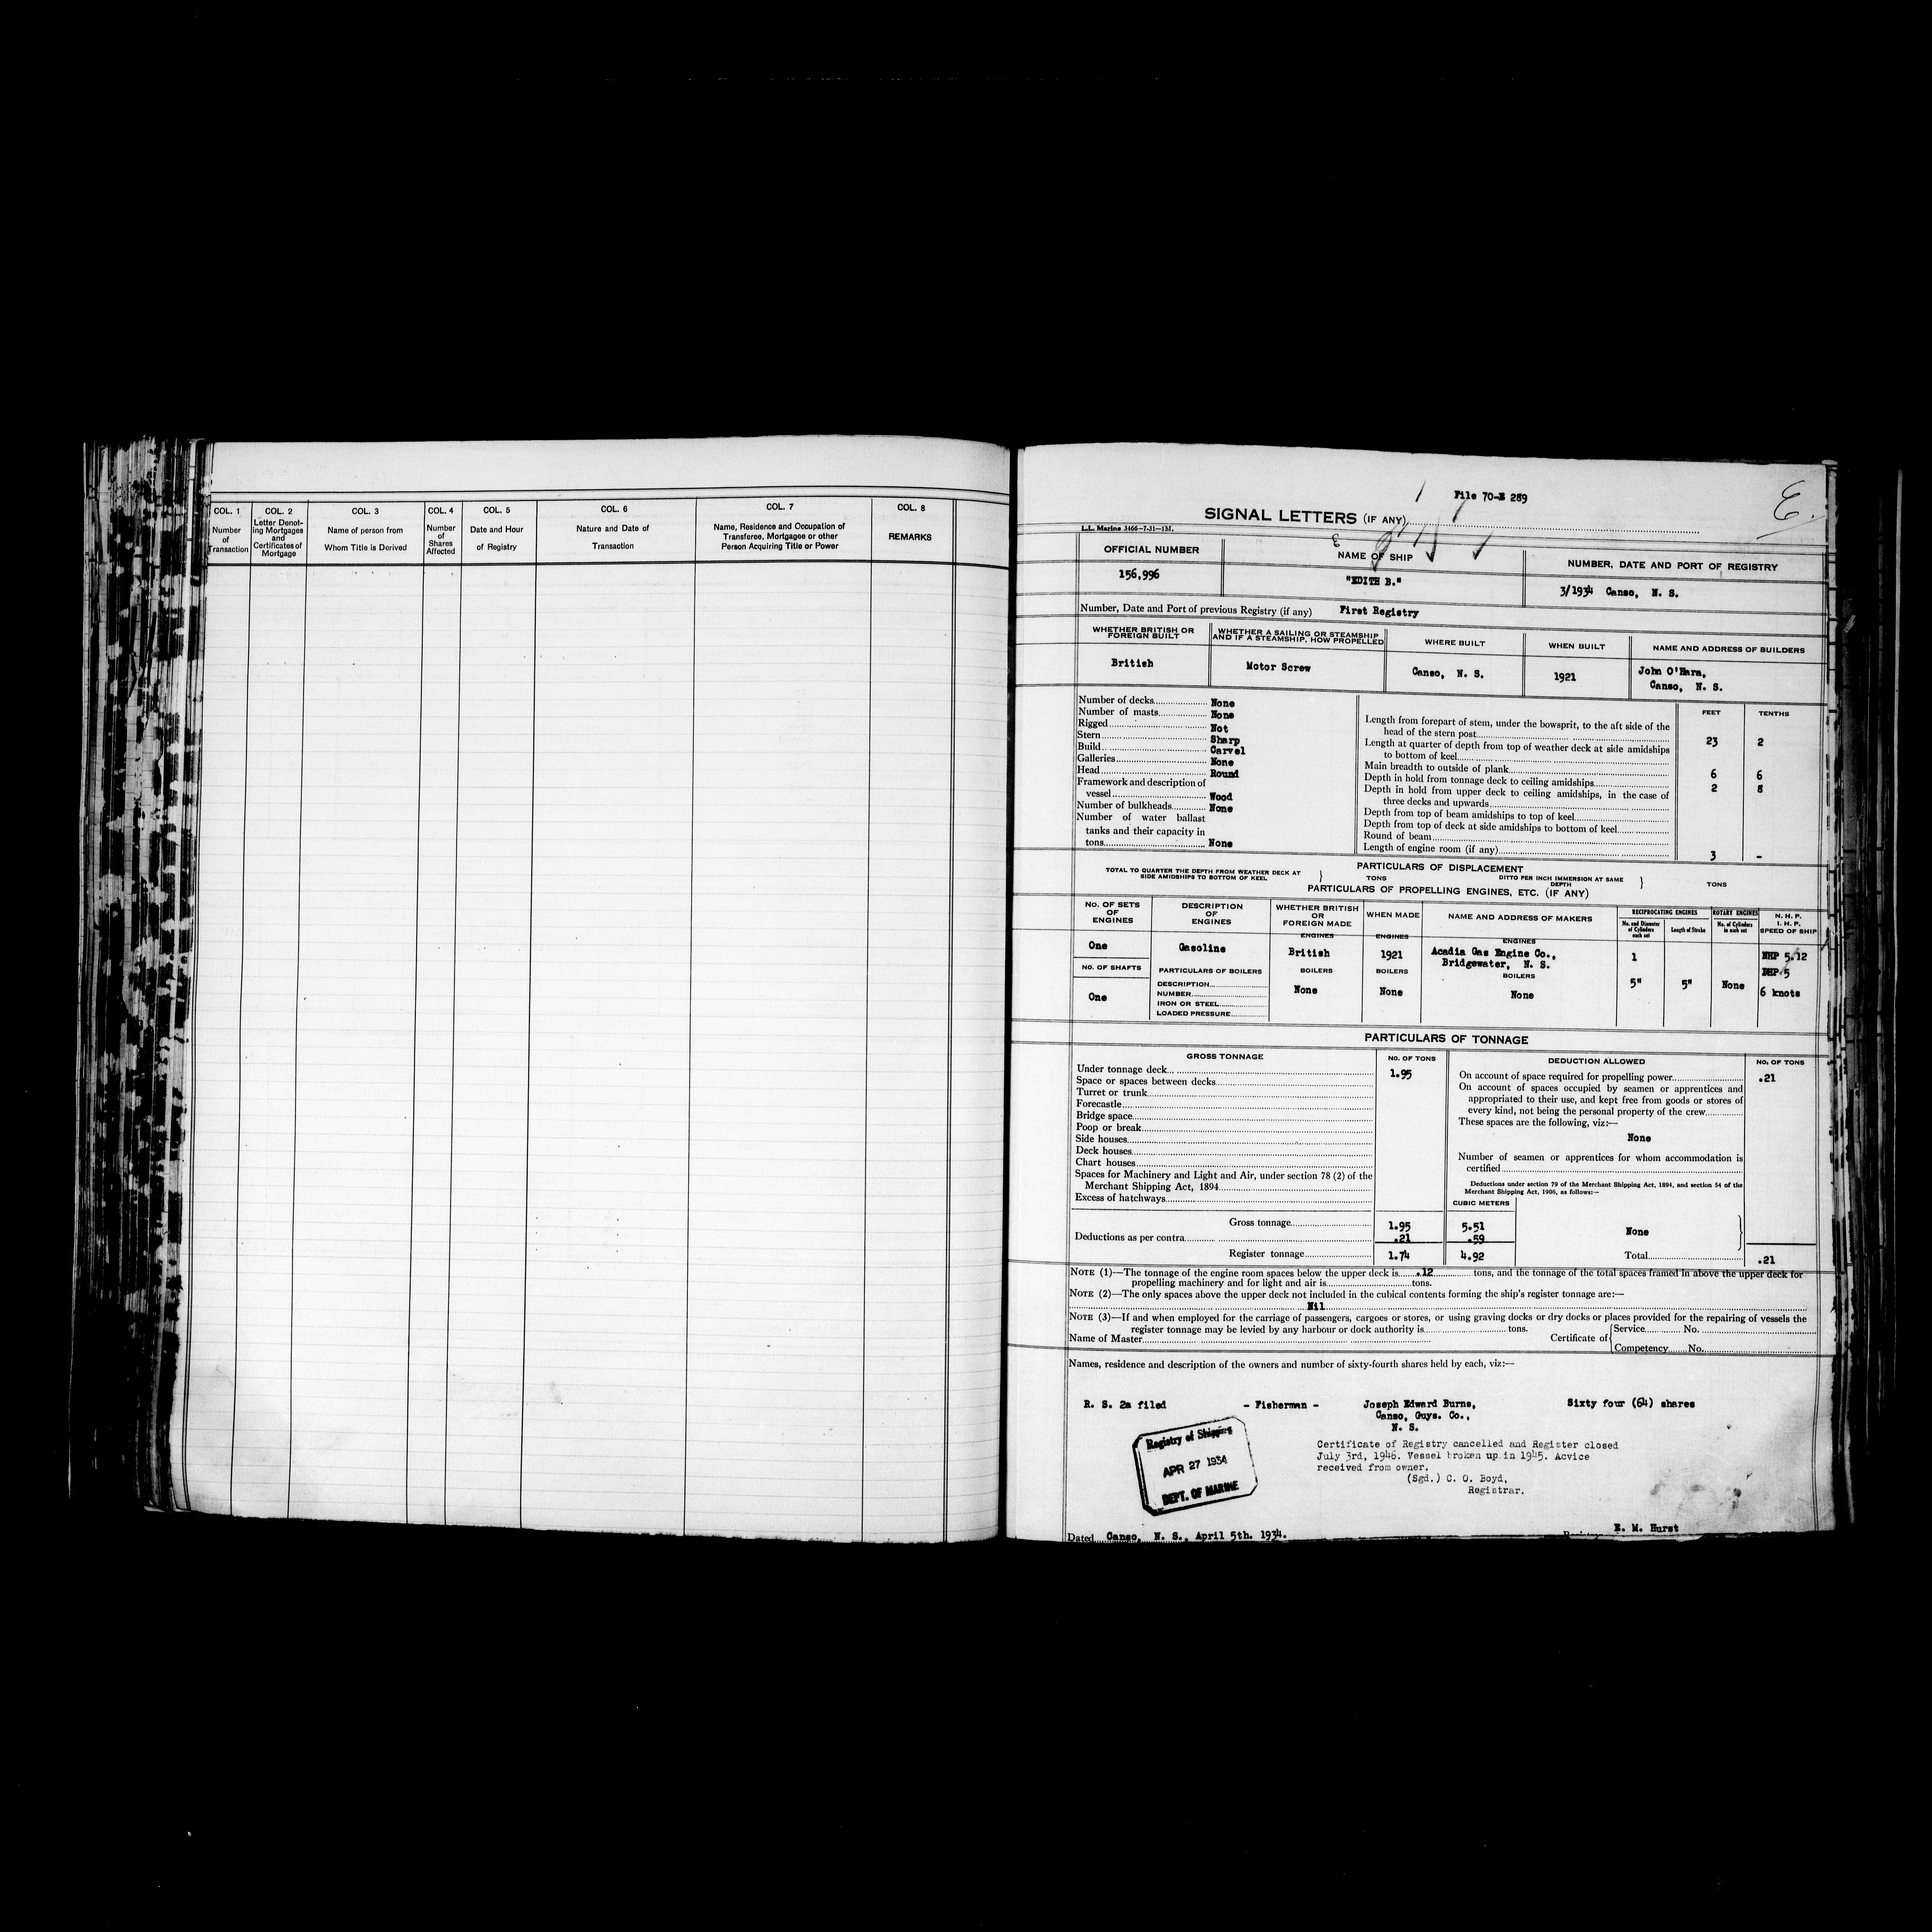 COL. 1
Number
of
Transaction
COL. 2
Letter Denot-
ing Mortgages
and
Certificates of
Mortgage
COL. 3
Name of person from
Whom Title is Derived
COL. 4
Number
of
Shares
Affected
COL. 5
Date and Hour
of Registry
COL. 6
Nature and Date of
Transaction
COL. 7
Name, Residence and Occupation of
Transferee, Mortgagee or other
Person Acquiring Title or Power
COL. 8
REMARKS
File 70-E 289
E.
SIGNAL LETTERS (IF ANY)
L.L. Marine 3466-7-31-1M.
OFFICIAL NUMBER
156,996
NAME OF SHIP
"EDITH B."
NUMBER, DATE AND PORT OF REGISTRY
3/1934 Canso, N. S.
Number, Date and Port of previous Registry (if any) First Registry
WHETHER BRITISH OR
FOREIGN BUILT
British
WHETHER A SAILING OR STEAMSHIP
AND IF A STEAMSHIP, HOW PROPELLED
Motor Screw
WHERE BUILT
Canso, N. S.
WHEN BUILT
1921
NAME AND ADDRESS OF BUILDERS
John O'Hara,
Canso, N. S.
Number of decks None
Number of masts None
Rigged Not
Stern Sharp
Build Carvel
Galleries None
Head Round
Framework and description of
vessel Wood
Number of bulkheads None
Number of water ballast
tanks and their capacity in
tons None
FEET TENTHS
Length from forepart of stem, under the bowsprit, to the aft side of the
head of the stern post 23 2
Length at quarter of depth from top of weather deck at side amidships
to bottom of keel
Main breadth to outside of plank 6 6
Depth in hold from tonnage deck to ceiling amidships 2 8
Depth in hold from upper deck to ceiling amidships, in the case of
three decks and upwards
Depth from top of beam amidships to top of keel
Depth from top of deck at side amidships to bottom of keel
Round of beam
Length of engine room (if any) 3 -
PARTICULARS OF DISPLACEMENT
TOTAL TO QUARTER THE DEPTH FROM WEATHER DECK AT
SIDE AMIDSHIPS TO BOTTOM OF KEEL
TONS
DITTO PER INCH IMMERSION AT SAME
DEPTH
TONS
PARTICULARS OF PROPELLING ENGINES, ETC. (IF ANY)
No. OF SETS
OF
ENGINES
One
NO. OF SHAFTS
One
DESCRIPTION
OF
ENGINES
Gasoline
PARTICULARS OF BOILERS
DESCRIPTION
NUMBER
IRON OR STEEL
LOADED PRESSURE
WHETHER BRITISH
OR
FOREIGN MADE
ENGINES
British
BOILERS
None
WHEN MADE
ENGINES
1921
BOILERS
None
NAME AND ADDRESS OF MAKERS
ENGINES
Acadia Gas Engine Co.,
Bridgewater, N. S.
BOILERS
None
RECIPROCATING ENGINES
No. and Diameter
of Cylinders
each set
1
5"
Length of Stroke
5"
ROTARY ENGINES
No. of Cylinders
in each set
None
N. H. P.
I. H. P.
SPEED OF SHIP
NHP 5.12
BHP 5
6 knots
PARTICULARS OF TONNAGE
GROSS TONNAGE
NO. OF TONS
Under tonnage deck 1.95
Space or spaces between decks
Turret or trunk
Forecastle
Bridge space
Poop or break
Side houses
Deck houses
Chart houses
Spaces for Machinery and Light and Air, under section 78 (2) of the
Merchant Shipping Act, 1894
Excess of hatchways
DEDUCTION ALLOWED
NO. OF TONS
On account of space required for propelling power .21
On account of spaces occupied by seamen or apprentices and
appropriated to their use, and kept free from goods or stores of
every kind, not being the personal property of the crew
These spaces are the following, viz:—
None
Number of seamen or apprentices for whom accommodation is
certified
Deductions under section 79 of the Merchant Shipping Act, 1894, and section 54 of the
Merchant Shipping Act, 1906, as follows:—
CUBIC METERS
Gross tonnage 1.95 5.51
None
Deductions as per contra .21 .59
Register tonnage 1.74 4.92
Total .21
NOTE (1)—The tonnage of the engine room spaces below the upper deck is .12 tons, and the tonnage of the total spaces framed in above the upper deck for
propelling machinery and for light and air is tons.
NOTE (2)—The only spaces above the upper deck not included in the cubical contents forming the ship's register tonnage are:—
Nil
NOTE (3)—If and when employed for the carriage of passengers, cargoes or stores, or using graving docks or dry docks or places provided for the repairing of vessels the
register tonnage may be levied by any harbour or dock authority is tons.
Name of Master
Certificate of
Service No.
Competency No.
Names, residence and description of the owners and number of sixty-fourth shares held by each, viz:—
R. S. 2a filed - Fisherman - Joseph Edward Burns, Sixty four (64) shares
Canso, Guys. Co.,
N. S.
Registry of Shipping
APR 27 1934
DEPT. OF MARINE
Certificate of Registry cancelled and Register closed
July 3rd, 1946. Vessel broken up in 1945. Advice
received from owner.
(Sgd.) C. O. Boyd,
Registrar.
Dated Canso, N. S., April 5th. 1934.
E. M. Hurst